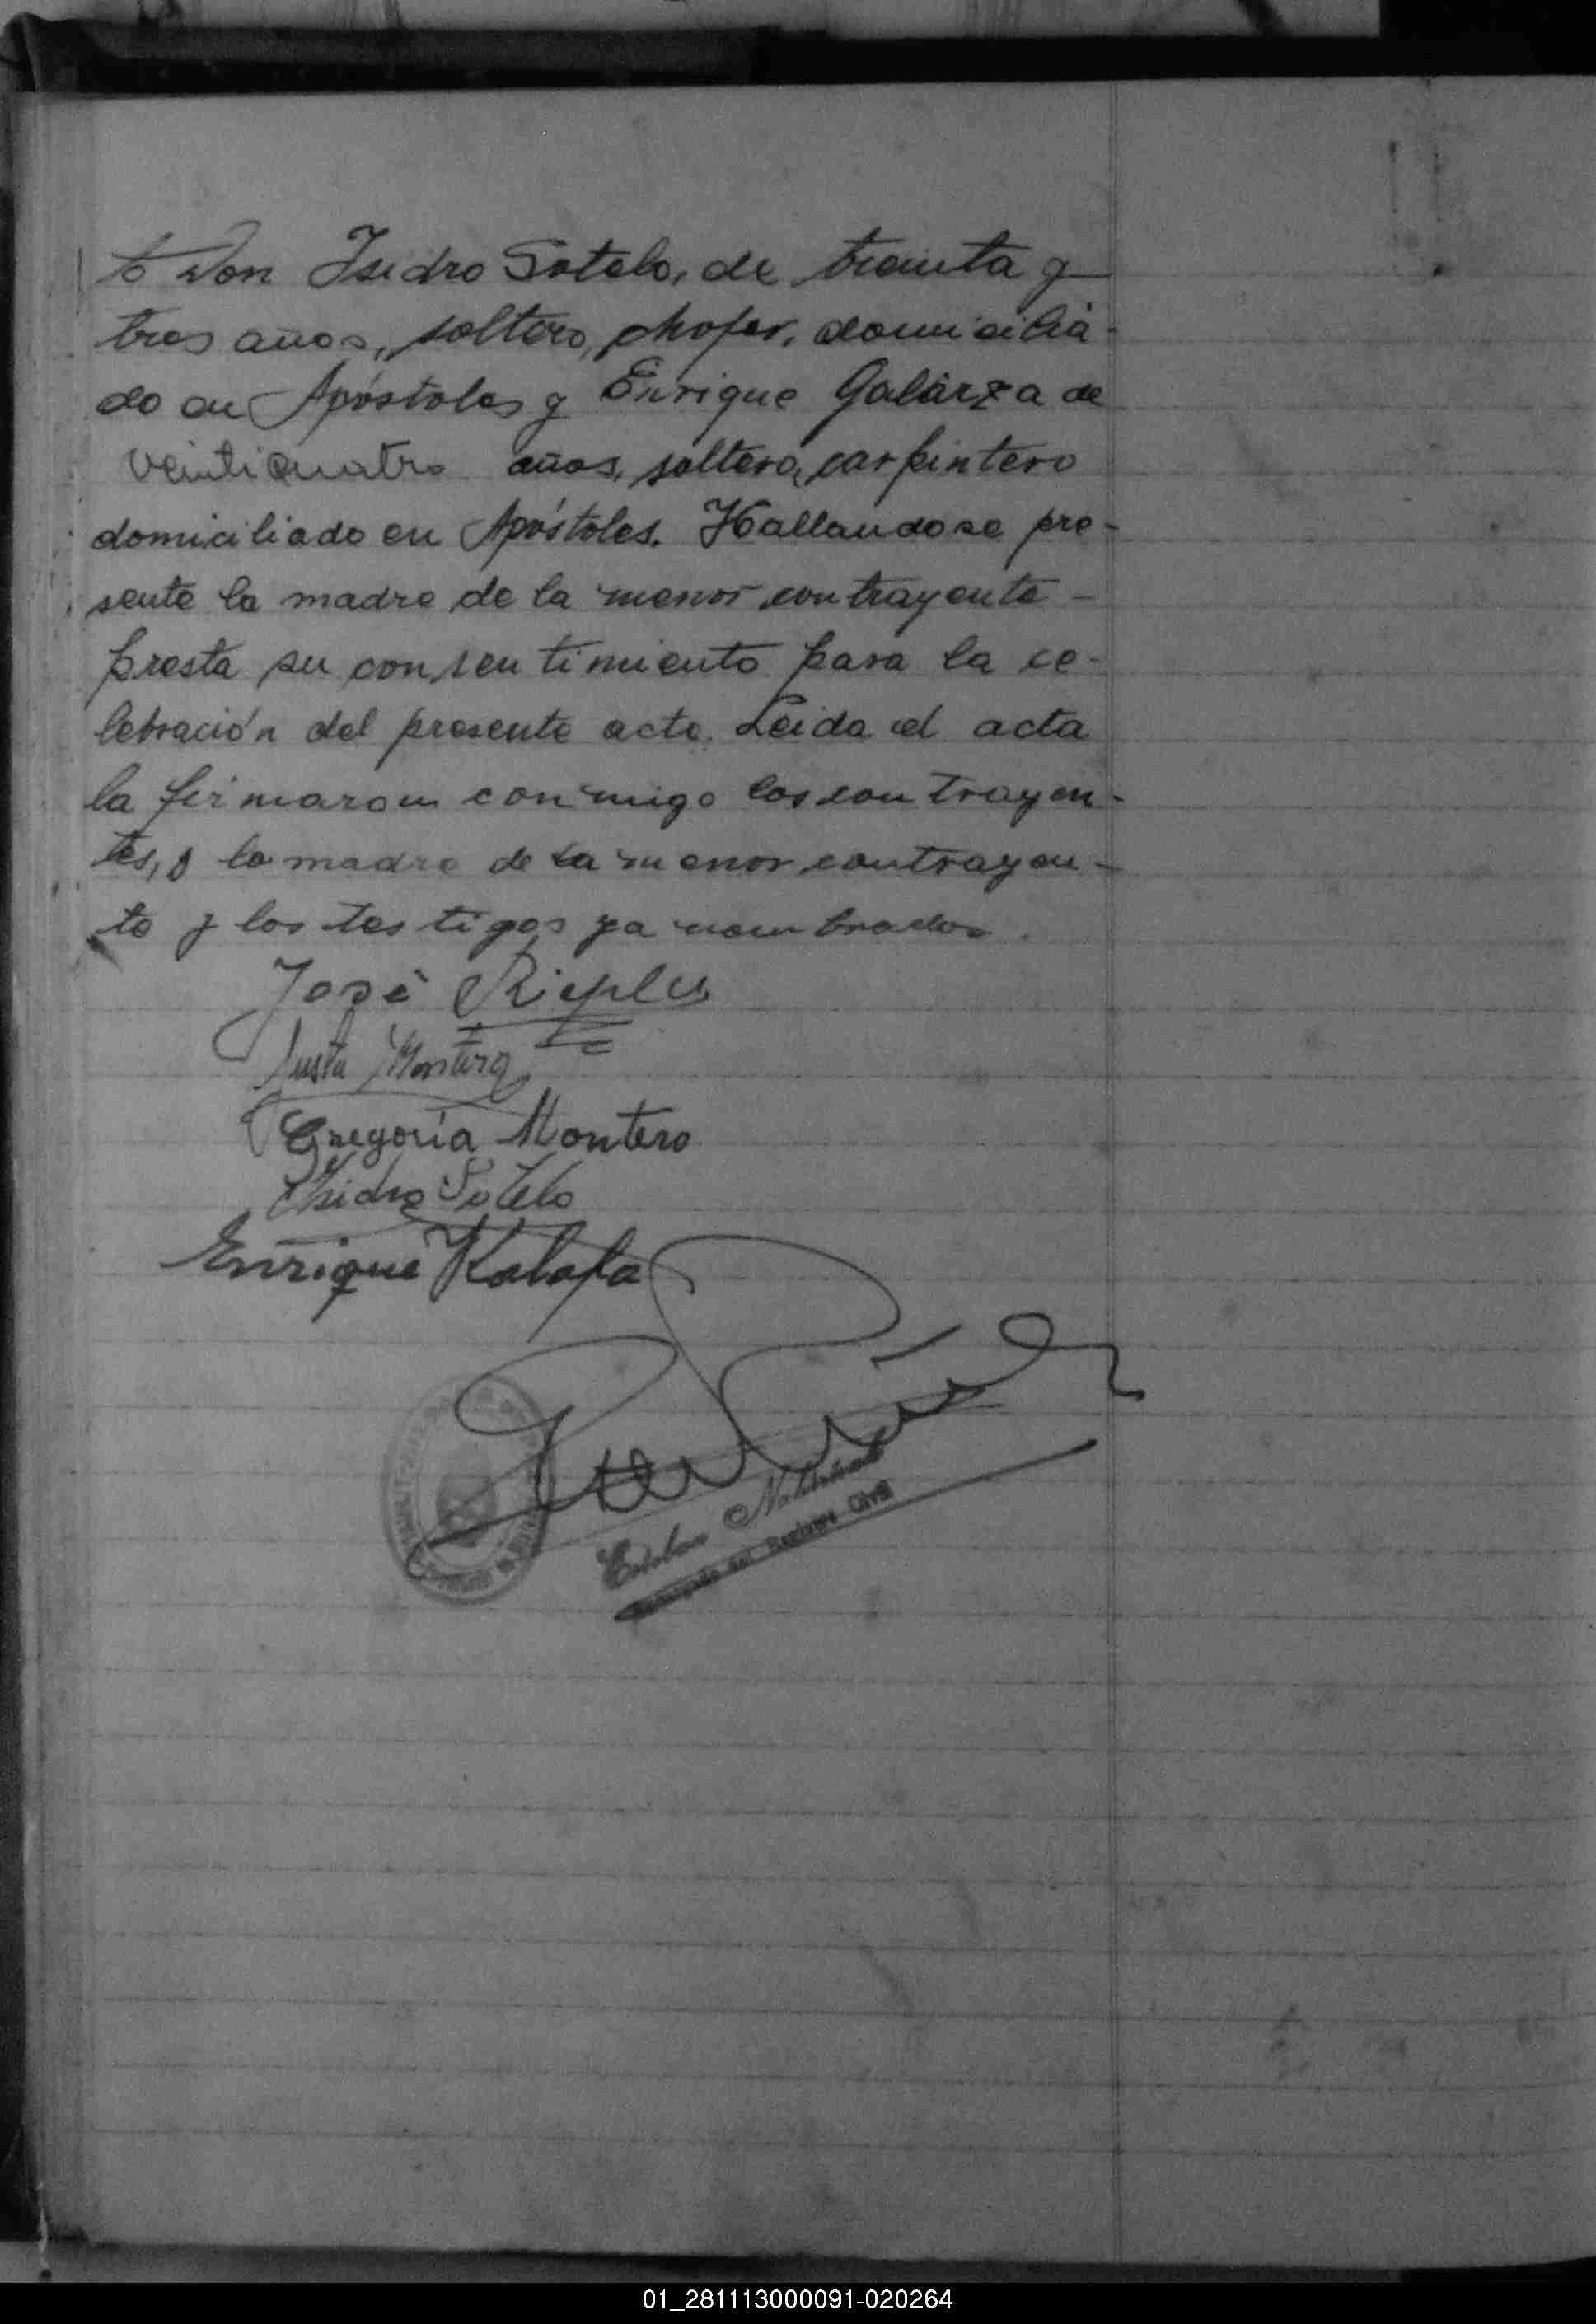 to Don Isidro Sotelo, de treinta y
tres años, soltero, chofer, domicilia-
do en Apóstoles y Enrique Galarza de
veinticuatro años, soltero, carpintero
domiciliado en Apóstoles. Hallandose pre-
sente la madre de la menor contrayente -
presta su consentimiento para la ce-
lebración del presente acto. Leida el acta
la firmaron conmigo los contrayen-
tes, y la madre de la menor contrayen-
te y los testigos ya nombrados.
José
Justa Montero
Gregoria Montero
Isidro Sotelo
Enrique
Esteban
del Registro Civil
01_281113000091-020264